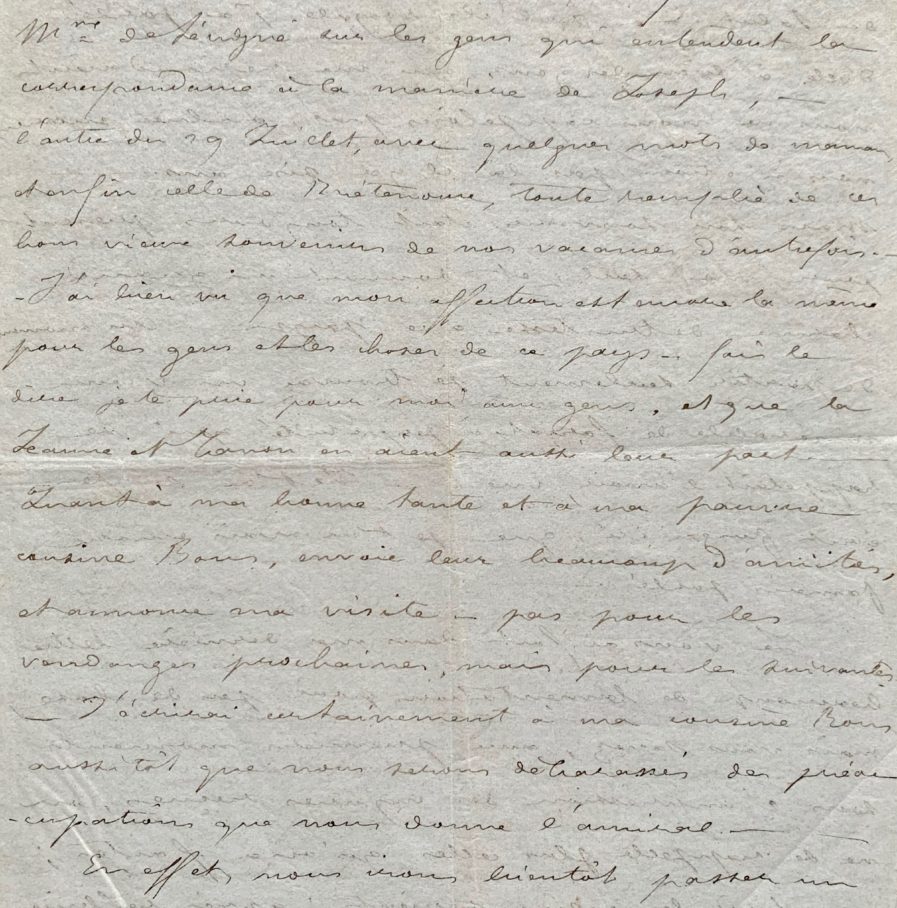 Mme de Sévigné sur les gens qui entendent la
correspondance à la manière de Joseph, —
l'autre du 29 Juillet, avec quelques mots de maman
et enfin celle de Bretenoux, toute remplie de ces
bons vieux souvenirs de nos vacances d'autrefois. -
- J'ai bien vu que mon affection est encore la même
pour les gens et les choses de ce pays - fais le
dire je te prie pour moi aux gens, et que la
Jeanne et Nanon en aient aussi leur part. —
Quant à ma bonne tante et à ma pauvre
cousine Bous, envoie leur beaucoup d'amitiés,
et annonce ma visite - pas pour les
vendanges prochaines, mais pour les suivantes
— J'écrirai certainement à ma cousine Bous
aussitôt que nous serons débarassés des préoc
-cupations que nous donne l'amiral. —
En effet, nous irons bientôt passer un